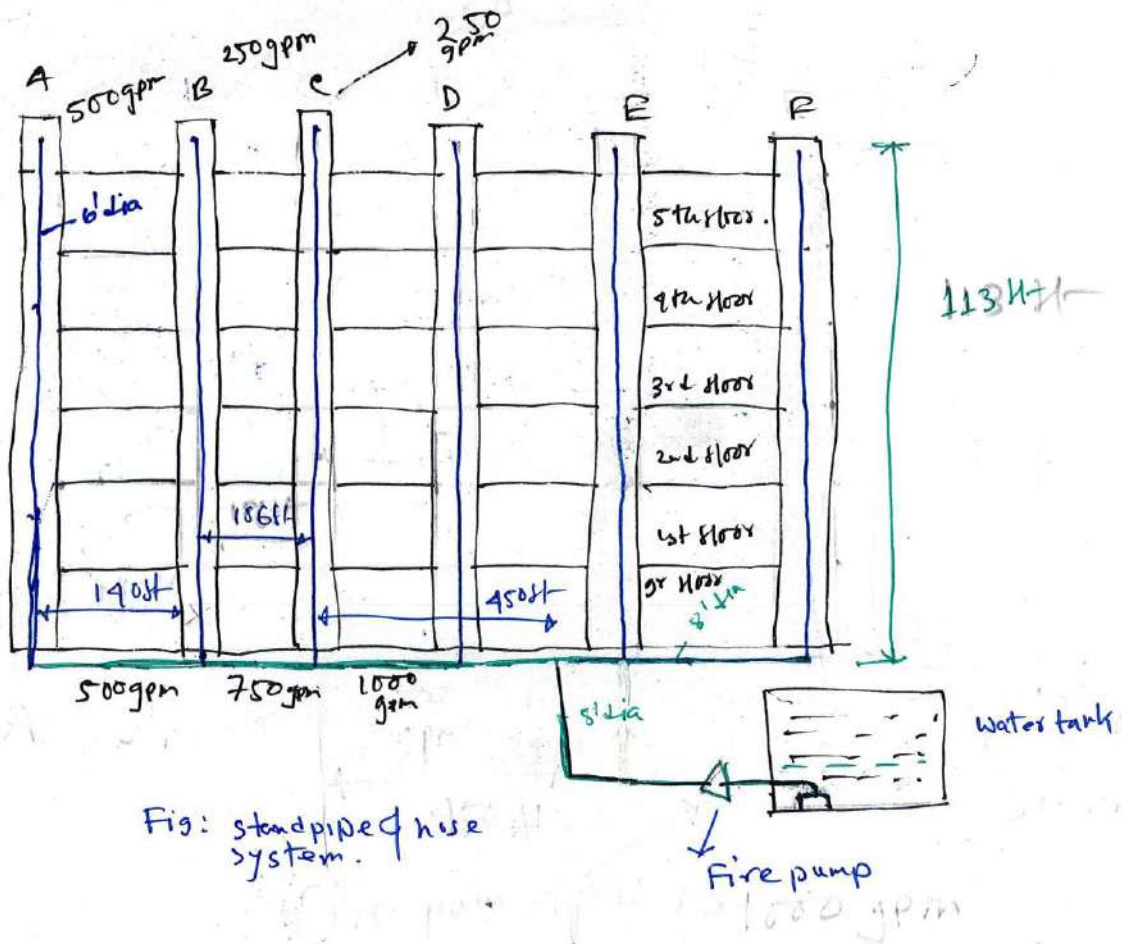 A
500gpm
B
250gpm
C
250
gpm
D
E
F
6'dia
5th floor.
4th floor
3rd floor
2nd floor
1st floor
gr floor
113 ft
186ft
140ft
450ft
8'dia
500gpm
750gpm
1000
gpm
8'dia
water tank
Fire pump
Fig: standpipe & hose
system.
1000 gpm